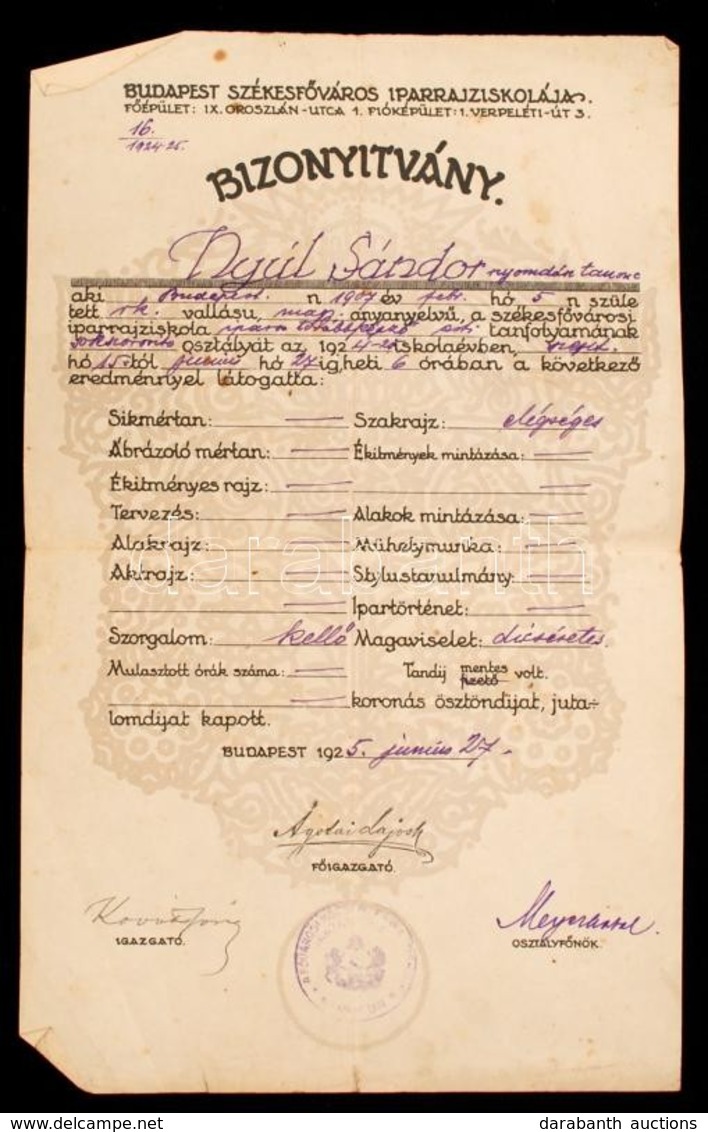 BUDAPEST SZÉKESFŐVÁROS IPARRAJZISKOLÁJA.
FŐÉPÜLET: IX. OROSZLÁN-UTCA 1. FIÓKÉPÜLET: I. VERPELÉTI-ÚT 3.
16.
1924-25.
BIZONYITVÁNY.
Nyúl Sándor nyomdász tanonc
aki Budapest. n 1907 év febr. hó 5 n szüle
tett rk. vallásu, magy. anyanyelvű, a székesfővárosi
iparrajziskola iparos továbbképző esti tanfolyamának
osztályát az 1924-25 iskolaévben, szept.
hó 15.-tól junius hó 27 ig, heti 6 órában a következő
eredménnyel látogatta:
Sikmértan: — Szakrajz: elégséges
Ábrázoló mértan: — Ékitmények mintázása: —
Ékitményes rajz: — —
Tervezés: — Alakok mintázása: —
Alakrajz: — Műhelymunka: —
Aktrajz: — Stylustanulmány: —
— Ipartörténet: —
Szorgalom: kellő Magaviselet: dicséretes.
Mulasztott órák száma: — Tandij mentes fizető volt.
— koronás ösztöndijat, juta-
lomdijat kapott.
BUDAPEST 1925. június 27.
Ágotai Lajos
FŐIGAZGATÓ.
IGAZGATÓ.
OSZTÁLYFŐNÖK.
darabanth
delcampe.net
darabanth auctions